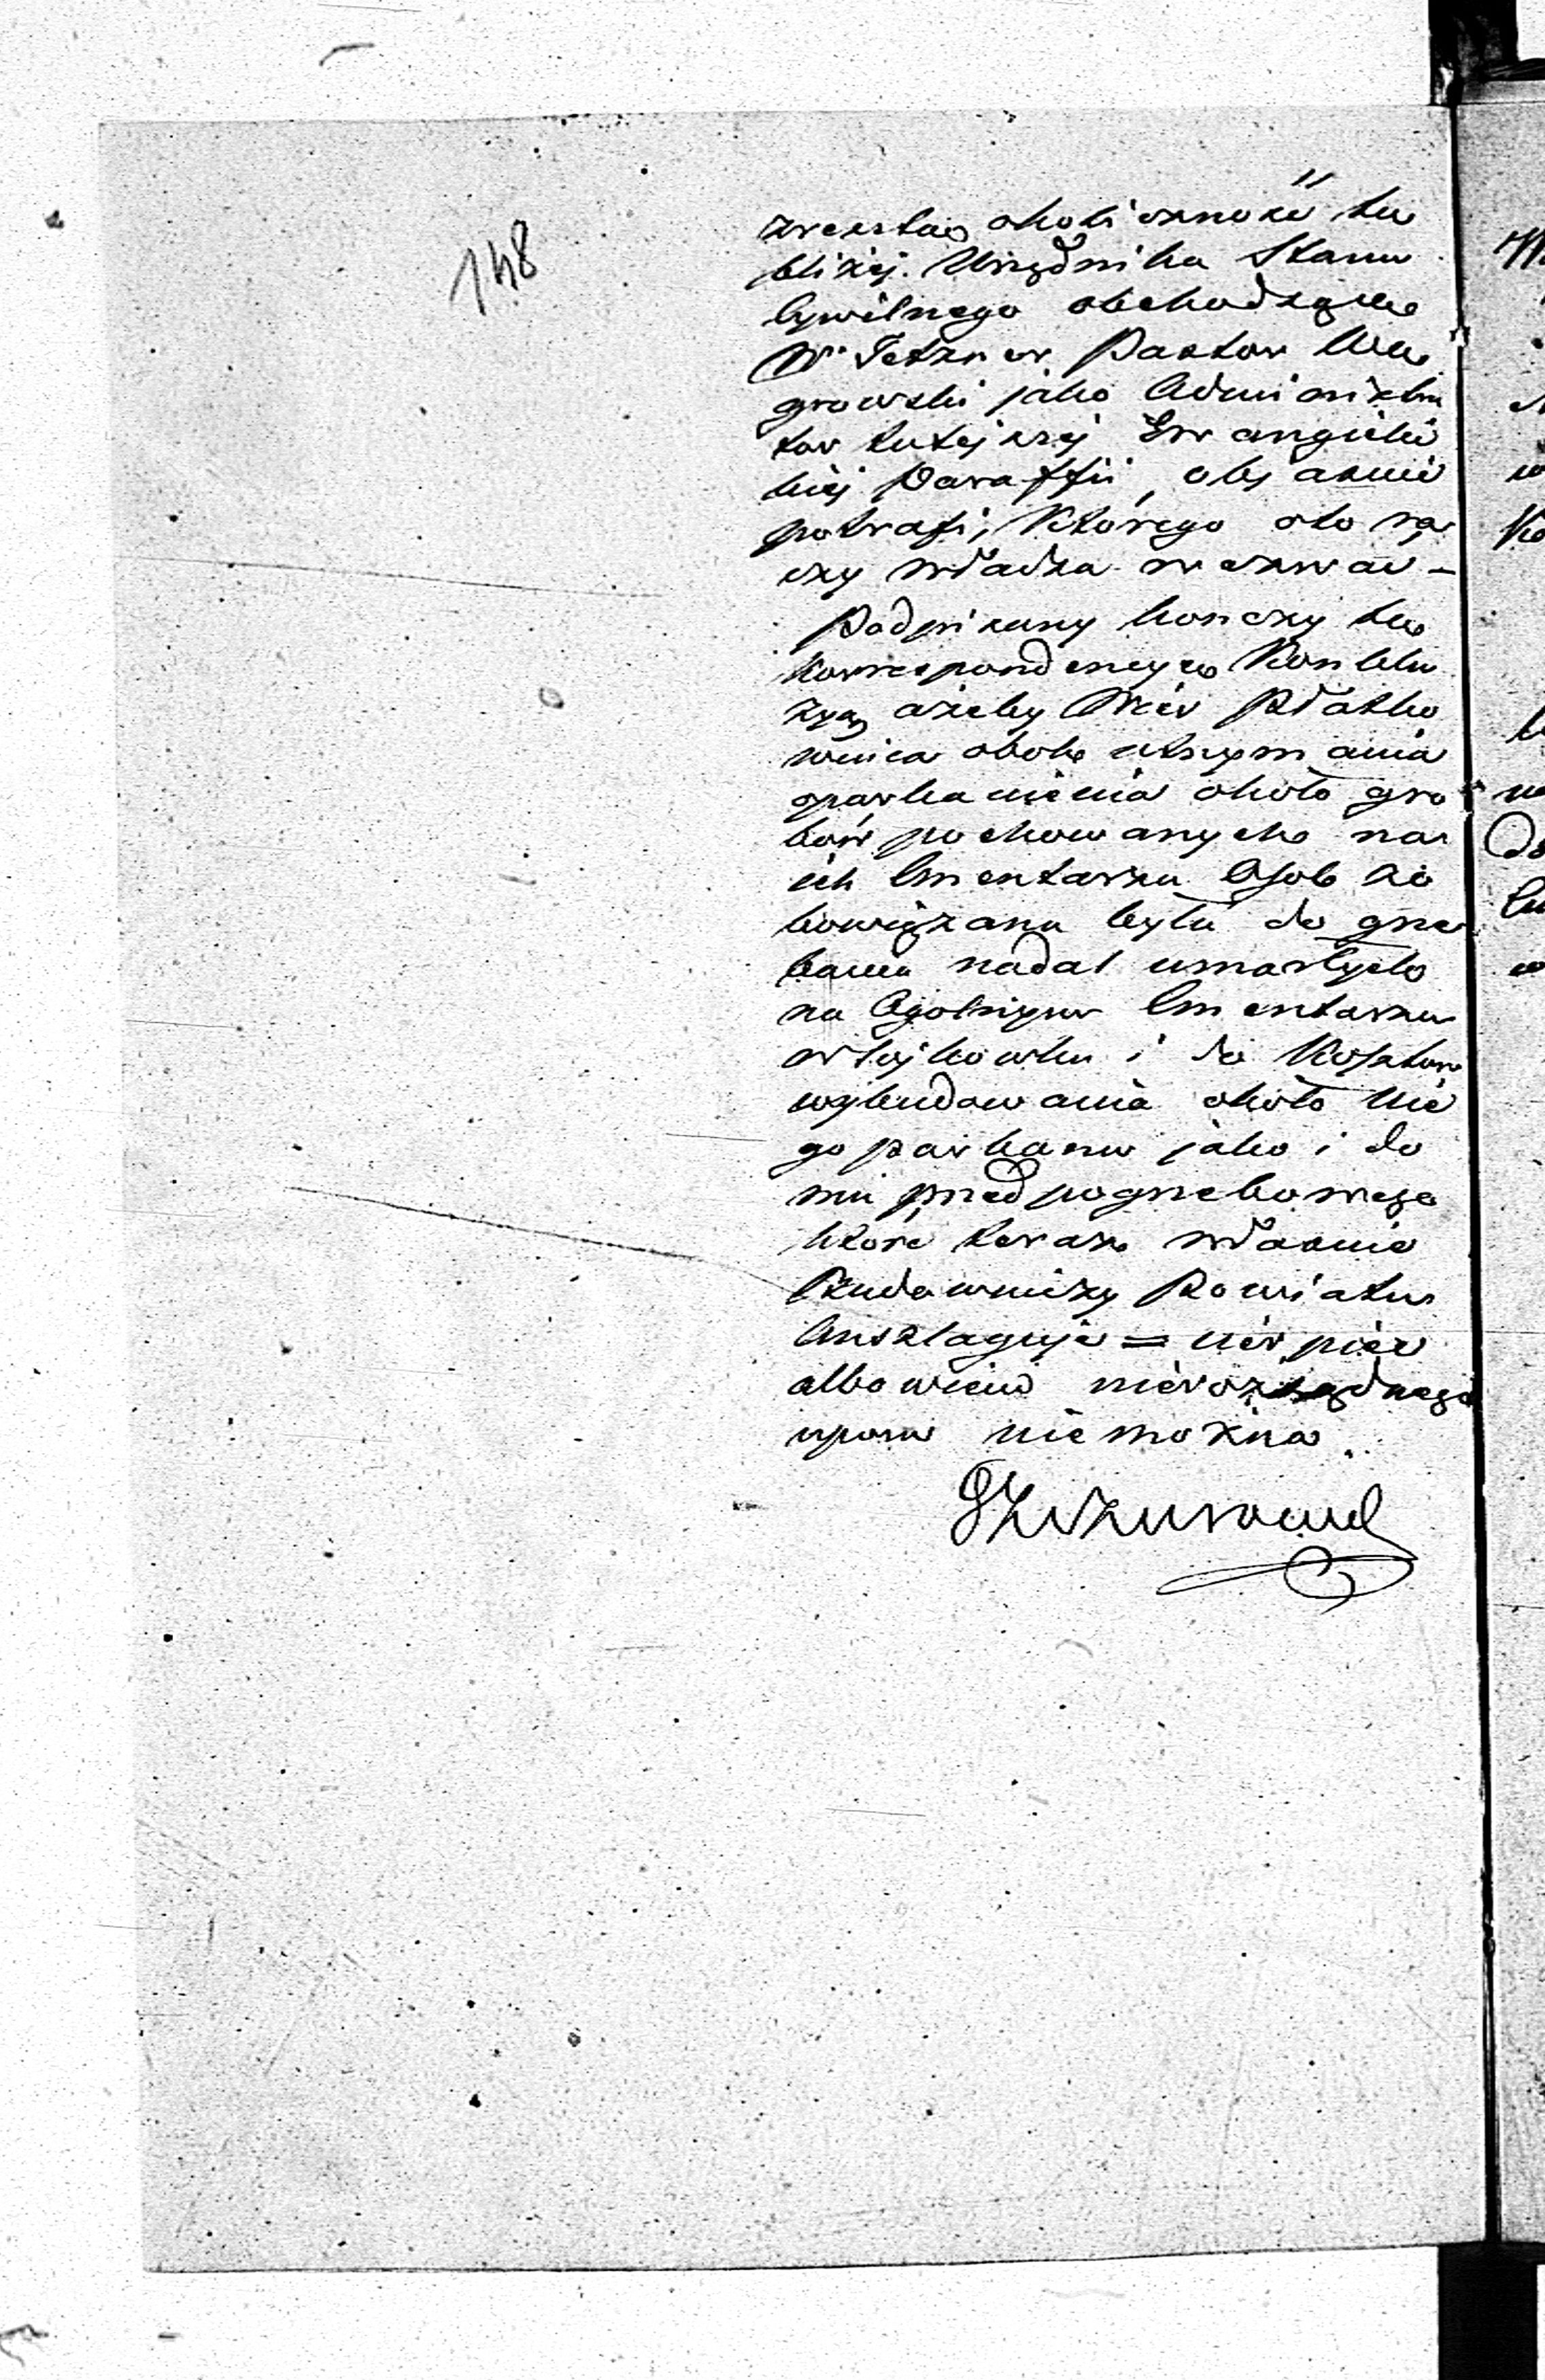 148
zresztą okoliczność tu
bliżej Urzędnika Stanu
Cywilnego obchodzącą
W. Tetzner Pastor Wę
growski jako Administra
tor tutejszej Ewangielic
kiej Paraffii, objaśnić
potrafi, Którego oto ra
czy władza wezwać –
Podpisany kończy tę
korrespondencyę Konklu
zyą ażeby Wieś Płatko
wnica obok utrzymania
oparkanienia około gro
bów pochowanych na
ich Cmentarzu Osob zo
bowiązana była do grze
bania nadal umarłych
na Ogólnym Cmentarzu
w Sójkowku i do Kosztów
wybudowania około Nie
go parkanu jako i do
mu przedpogrzebowego
które teraz właśnie
Budowniczy Powiatu
Anszlaguje = cierpieć
albowiem nierozsądnego
uporu nie można.